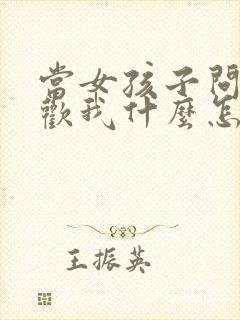 當女孩子問
歡我什麼怎
王振英